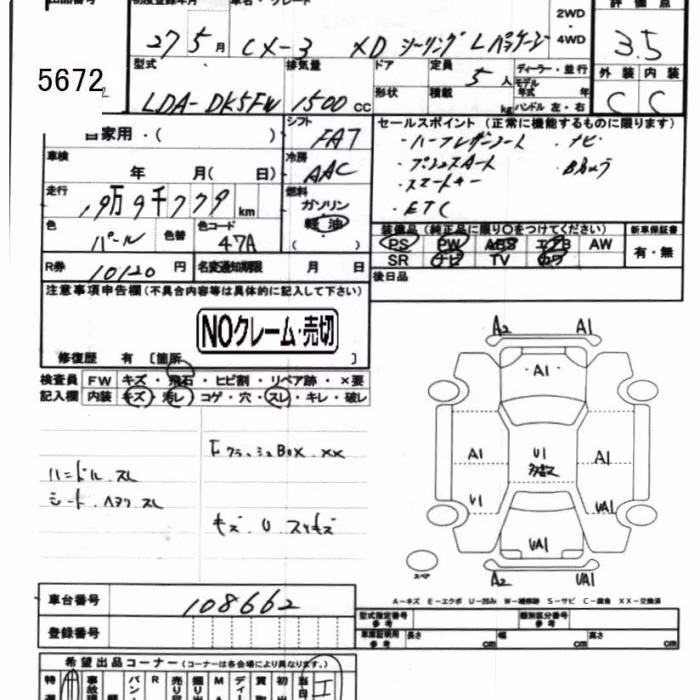 出品番号 初度登録年月 車名・グレード 2WD・4WD 評価点
5672
27 5月 CX-3 XD ツーリング Lパッケージ 3.5
型式 排気量 ドア 定員 ディーラー・並行 外装 内装
形状 積載 5人 モデル年式 年
LDA-DK5FW 1500 cc kg ハンドル 左・右 C C
自家用・( ) シフト FA7 セールスポイント (正常に機能するものに限ります)
・ハーフレザーシート ・ナビ
車検 年 月( 日) 冷房 AAC ・プッシュスタート ・Bカメラ
・スマートキー
走行 19万9千779 km 燃料 ガソリン 軽油 ( ) ・ETC
色 パール 色替 色コード 47A
装備品 (純正品に限り○をつけてください) 新車保証書
PS PW ABS エアB AW 有・無
SR ナビ TV カワ
R券 10120 円 名変通知期限 月 日 後日品
注意事項申告欄(不具合内容等は具体的に記入して下さい)
NOクレーム・売切
修復歴 有 〔箇所 〕
検査員 FW キズ・飛石・ヒビ割・リペア跡・×要
記入欄 内装 キズ・汚レ・コゲ・穴・スレ・キレ・破レ
ハンドル スレ
シート スレ
キズ U スリキズ
A2 A1
A1
A1 U1 A1
U1 UA1
UA1
スペア A2 UA1
A-キズ E-エクボ U-凹み W-補修跡 S-サビ C-腐食 XX-交換済
車台番号 108662
型式指定番号 参考 類別区分番号 参考
登録番号 車庫証明用 参考 長さ cm 幅 cm 高さ cm
希望出品コーナー (コーナーは各会場により異なります。)